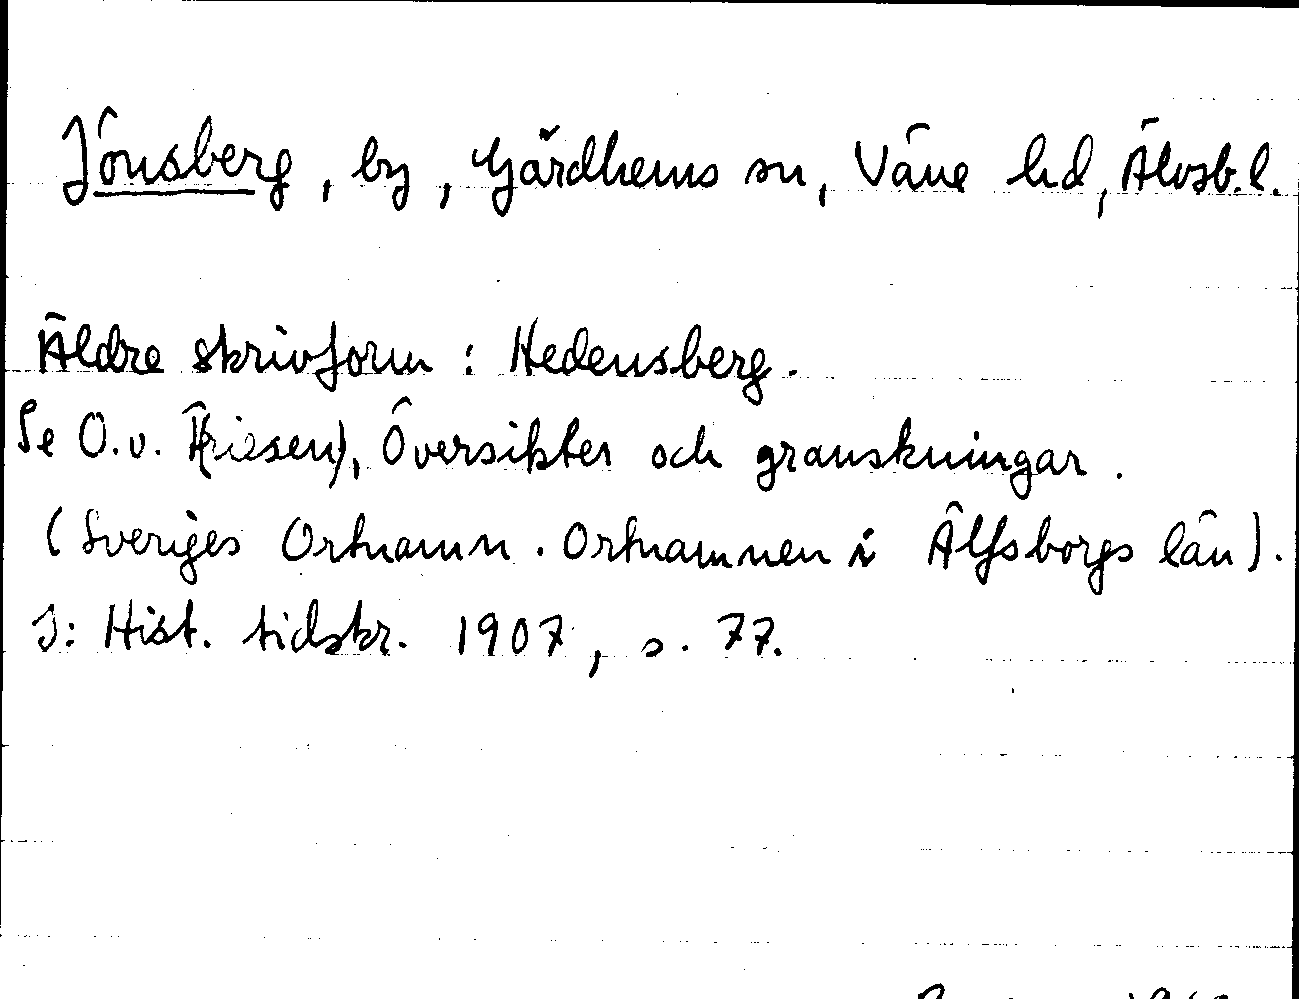 Jönsberg, by, Gärdhems sn, Väne hd, Älvsb. l.
Äldre skrivform : Hedensberg.
Se O. v. F(riesen), Översikter och granskningar.
(Sveriges Ortnamn. Ortnamnen i Älfsborgs län).
I: Hist. tidskr. 1907, s. 77.